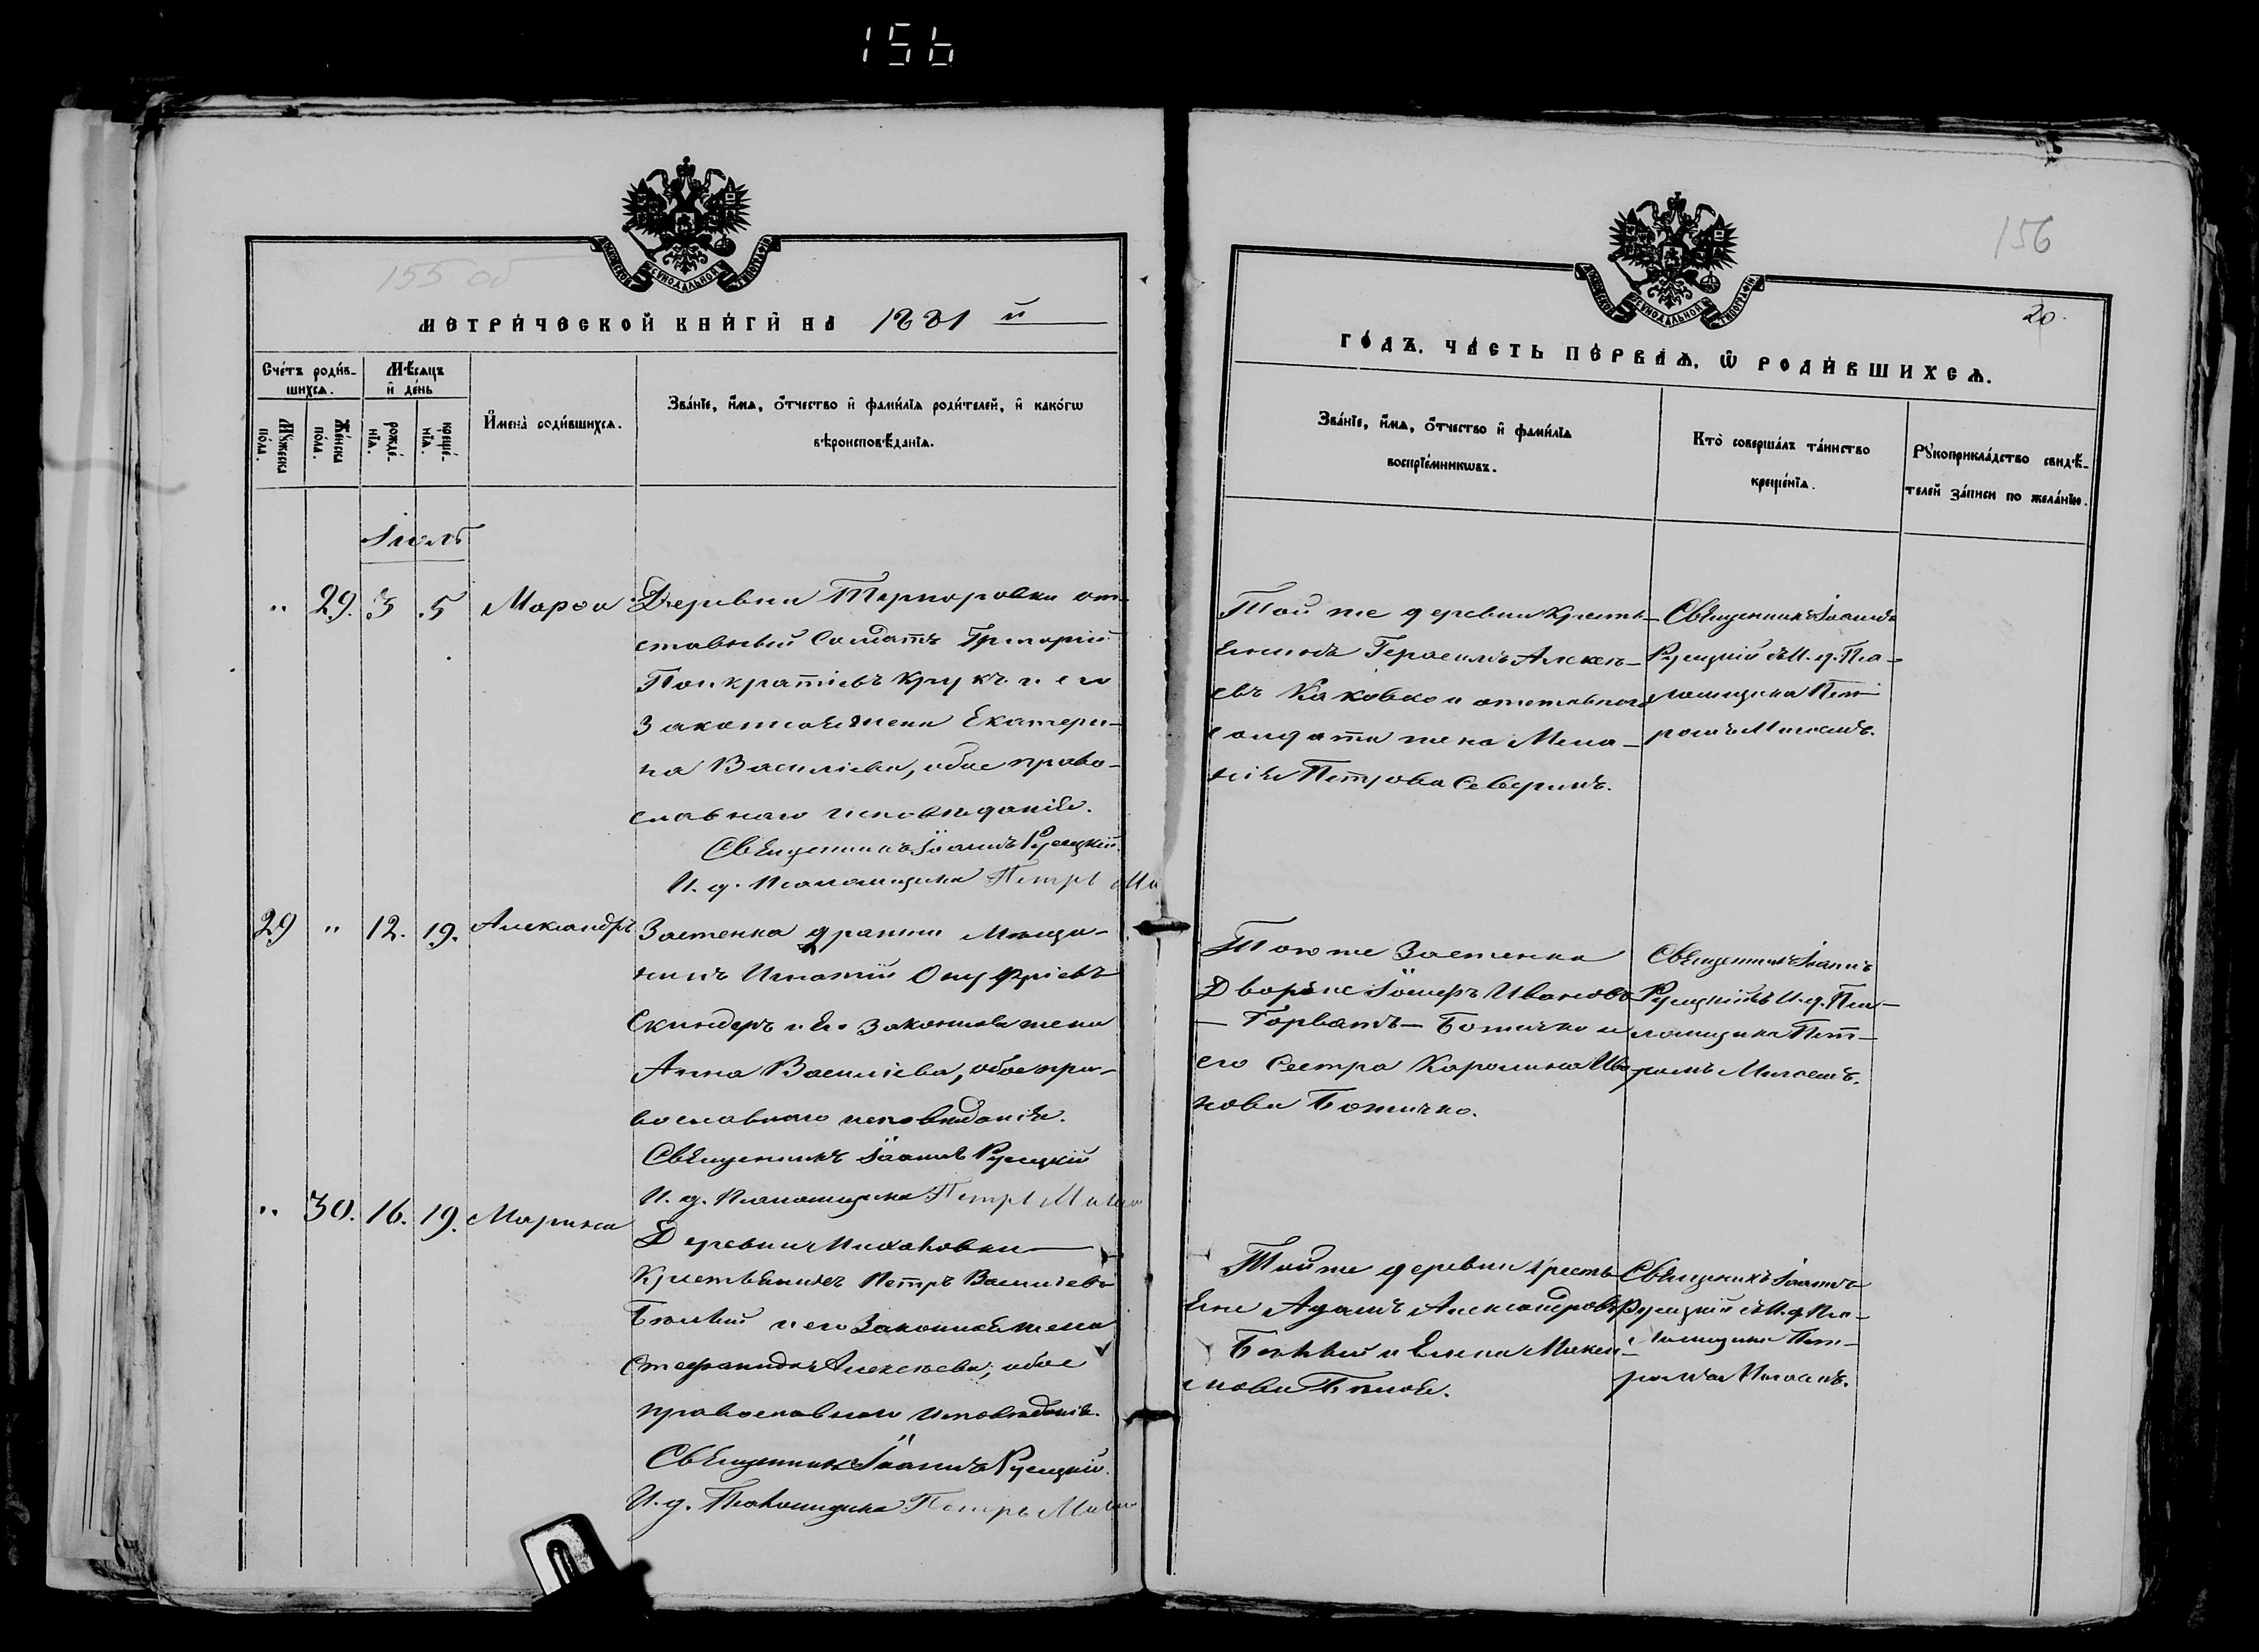 156
155 об
МЕТРИЧЕСКОЙ КНИГИ НА 1881 й
Счетъ родив-
шихся.
Мѣсяцъ
и день
Мужеска
пола.
Женска
пола.
рожде-
нія.
креще-
нія.
Имена родившихся.
Званіе, имя, отчество и фамилія родителей, и какогѡ
вѣроисповѣданія.
Іюль
" 29. 3 5 Марѳа
Деревни от-
ставный Солдатъ Григорій
Панкратіевъ Крукъ и его
Законная жена Екатери-
на Василіева, обое право-
славнаго исповѣданія.
Священникъ Іоаннъ Русецкій
И. д. Псаломщика Петръ
29 " 12. 19. Александръ
Застенка Мѣща-
нинъ Игнатій Онуфріевъ
Скиндеръ и его законная жена
Анна Василіева, обое пра-
вославнаго исповѣданія.
Священникъ Іоаннъ Русецкій
И. д. Псаломщика Петръ
" 30. 16. 19. Марина
Деревни
Крестьянинъ Петръ Василіевъ
Бѣлый и его Законная жена
Стефанида Алексѣева, обое
православнаго исповѣданія.
Священникъ Іоаннъ Русецкій.
И. д. Псаломщика Петръ
156
20.
ГОДЪ. ЧАСТЬ ПЕРВАЯ, Ѡ РОДИВШИХСЯ.
Званіе, имя, отчество и фамилія
воспріемниковъ.
Кто совершалъ таинство
крещенія.
Рукоприкладство свидѣ-
телей записи по желанію.
Той же деревни Кресть-
янинъ Герасимъ Алексѣ-
евъ и отставнаго
солдата жена Мела-
нія Петрова Северинъ.
Священникъ Іоаннъ
Русецкій съ И. д. Пса-
ломщика Пет-
ромъ
Того же Застенка
Дворяне Іосифъ Ивановъ
— Горватъ — Божичко и
его Сестра Каролина Ива
нова Божичко.
Священникъ Іоаннъ
Русецкій съ И. д. Пса-
ломщика Пет-
ромъ
Той же деревни Кресть
яне Адамъ Александровъ
Бѣлый и Елена
Бѣлая.
Священникъ Іоаннъ
Русецкій съ И. д. Пса-
ломщика Пет-
ромъ